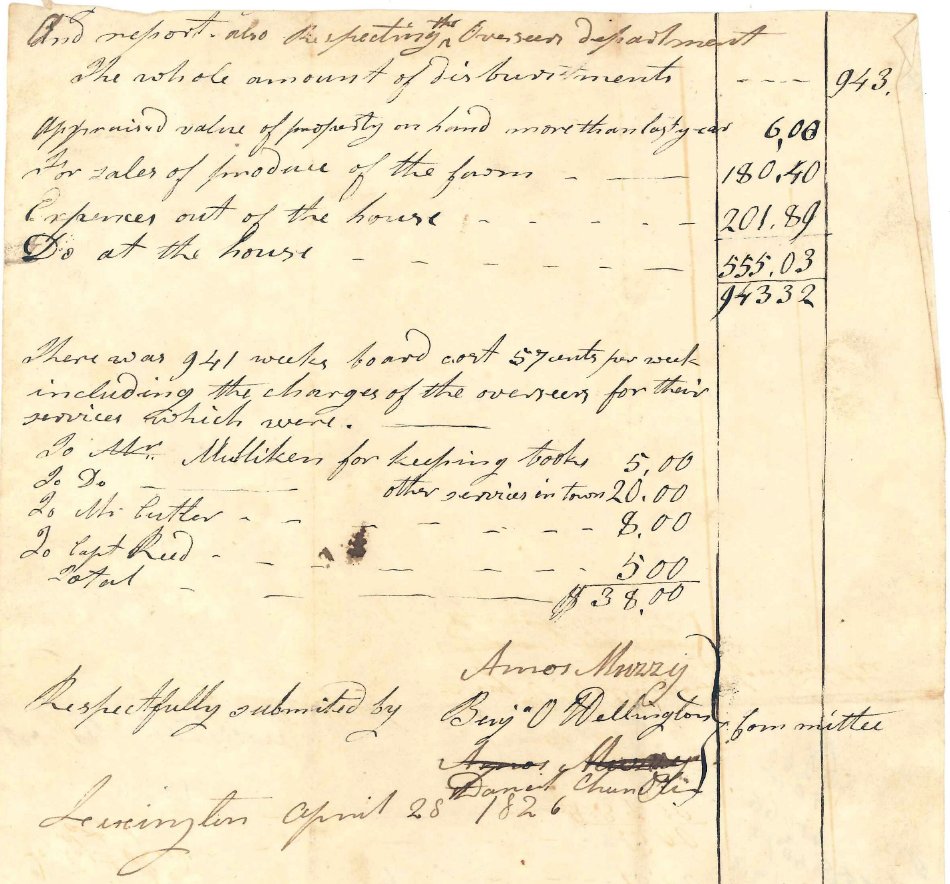 And report. also Respecting the Overseers department
The whole amount of disburstments - - - - 943.
Appraised value of property on hand more than last year 6,00
For sales of produce of the farm - — 180.40
Expences out of the house - - - - - - 201.89
Do at the house - - - - - - - 555.03
94332
There was 941 weeks board cost 57 cents per week
including the charges of the overseers for their
services which were. —
To Mr. Mulliken for keeping books 5,00
To Do — other services in town 20.00
To Mr Cutler - - - - - - 8.00
To Capt Reed - - - - - - - 500
Total - - — $ 38.00
Amos Muzzy
Respectfully submited by Benja O Wellington Committee
Amos Muzzy
Daniel Chandler
Lexington April 28 1826